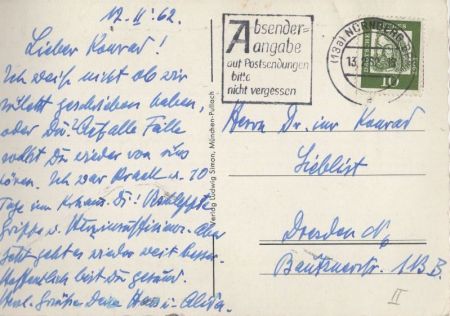 12. II. 62
Lieber Konrad!
Ich weiß nicht ob wir
zuletzt geschrieben haben,
oder Du? Auf alle Fälle
sollst Du wieder von uns
hören. Ich war krank u. 10
Tage im
Grippe u.
geht es wieder weit besser
Hoffentlich bist Du gesund.
Herzl. Grüße Deine
Verlag Ludwig Simon, München-Pullach
Absender-
angabe
auf Postsendungen
bitte
nicht vergessen
(13a) NÜRNBERG
13.
10
Herrn Dr. Konrad
Lieblist
Dresden N6
Bautznerstr. 113 B.
II